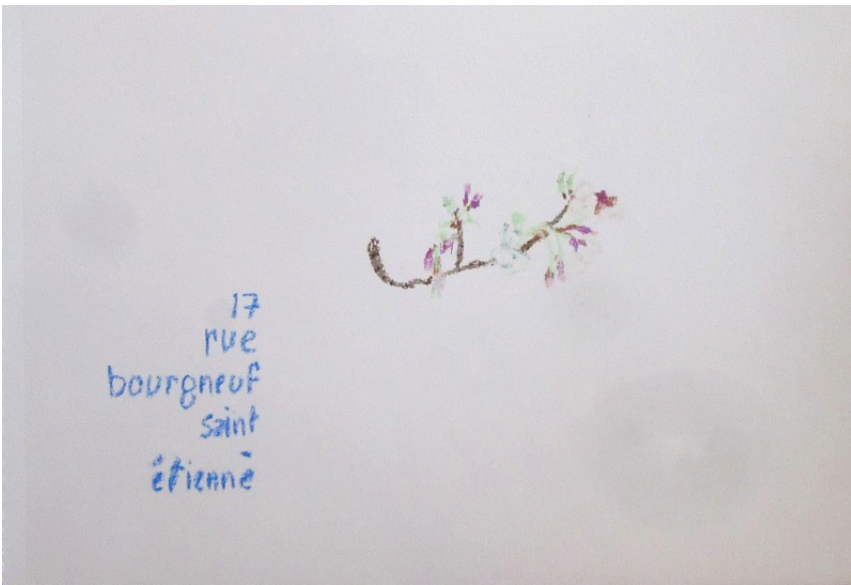 17
rue
bourgneuf
saint
étienne